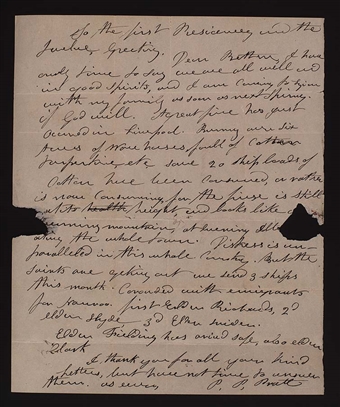 To the first Presidency and the
Twelve, Greeting. Dear Brethren, I have
only time to say we are all well and
in good spirits, and I am coming to you
with my family as soon as next Spring
if God will. A great fire has just
occured in Liverpool. Running over six
acres of ware houses, full of Cotton
turpentine, etc, some 20 ship loads of
Cotton have been consumed, or rather
is now consuming, for the fire is still
at its health height, and looks like a
burning mountain, at evening
along the whole town. Distress is un-
paralleled in this whole Country. But the
saints are getting out we send 3 ships
this month. Crowded with emigrants
for Nauvoo. first Elder Richards, 2d
Elder Hyde, 3d Elder Snider.
Elder Fielding has arived safe, also elder
Clark
I thank you for all your kind
letters, but have not time to answer
them. as ever, P. P. Pratt